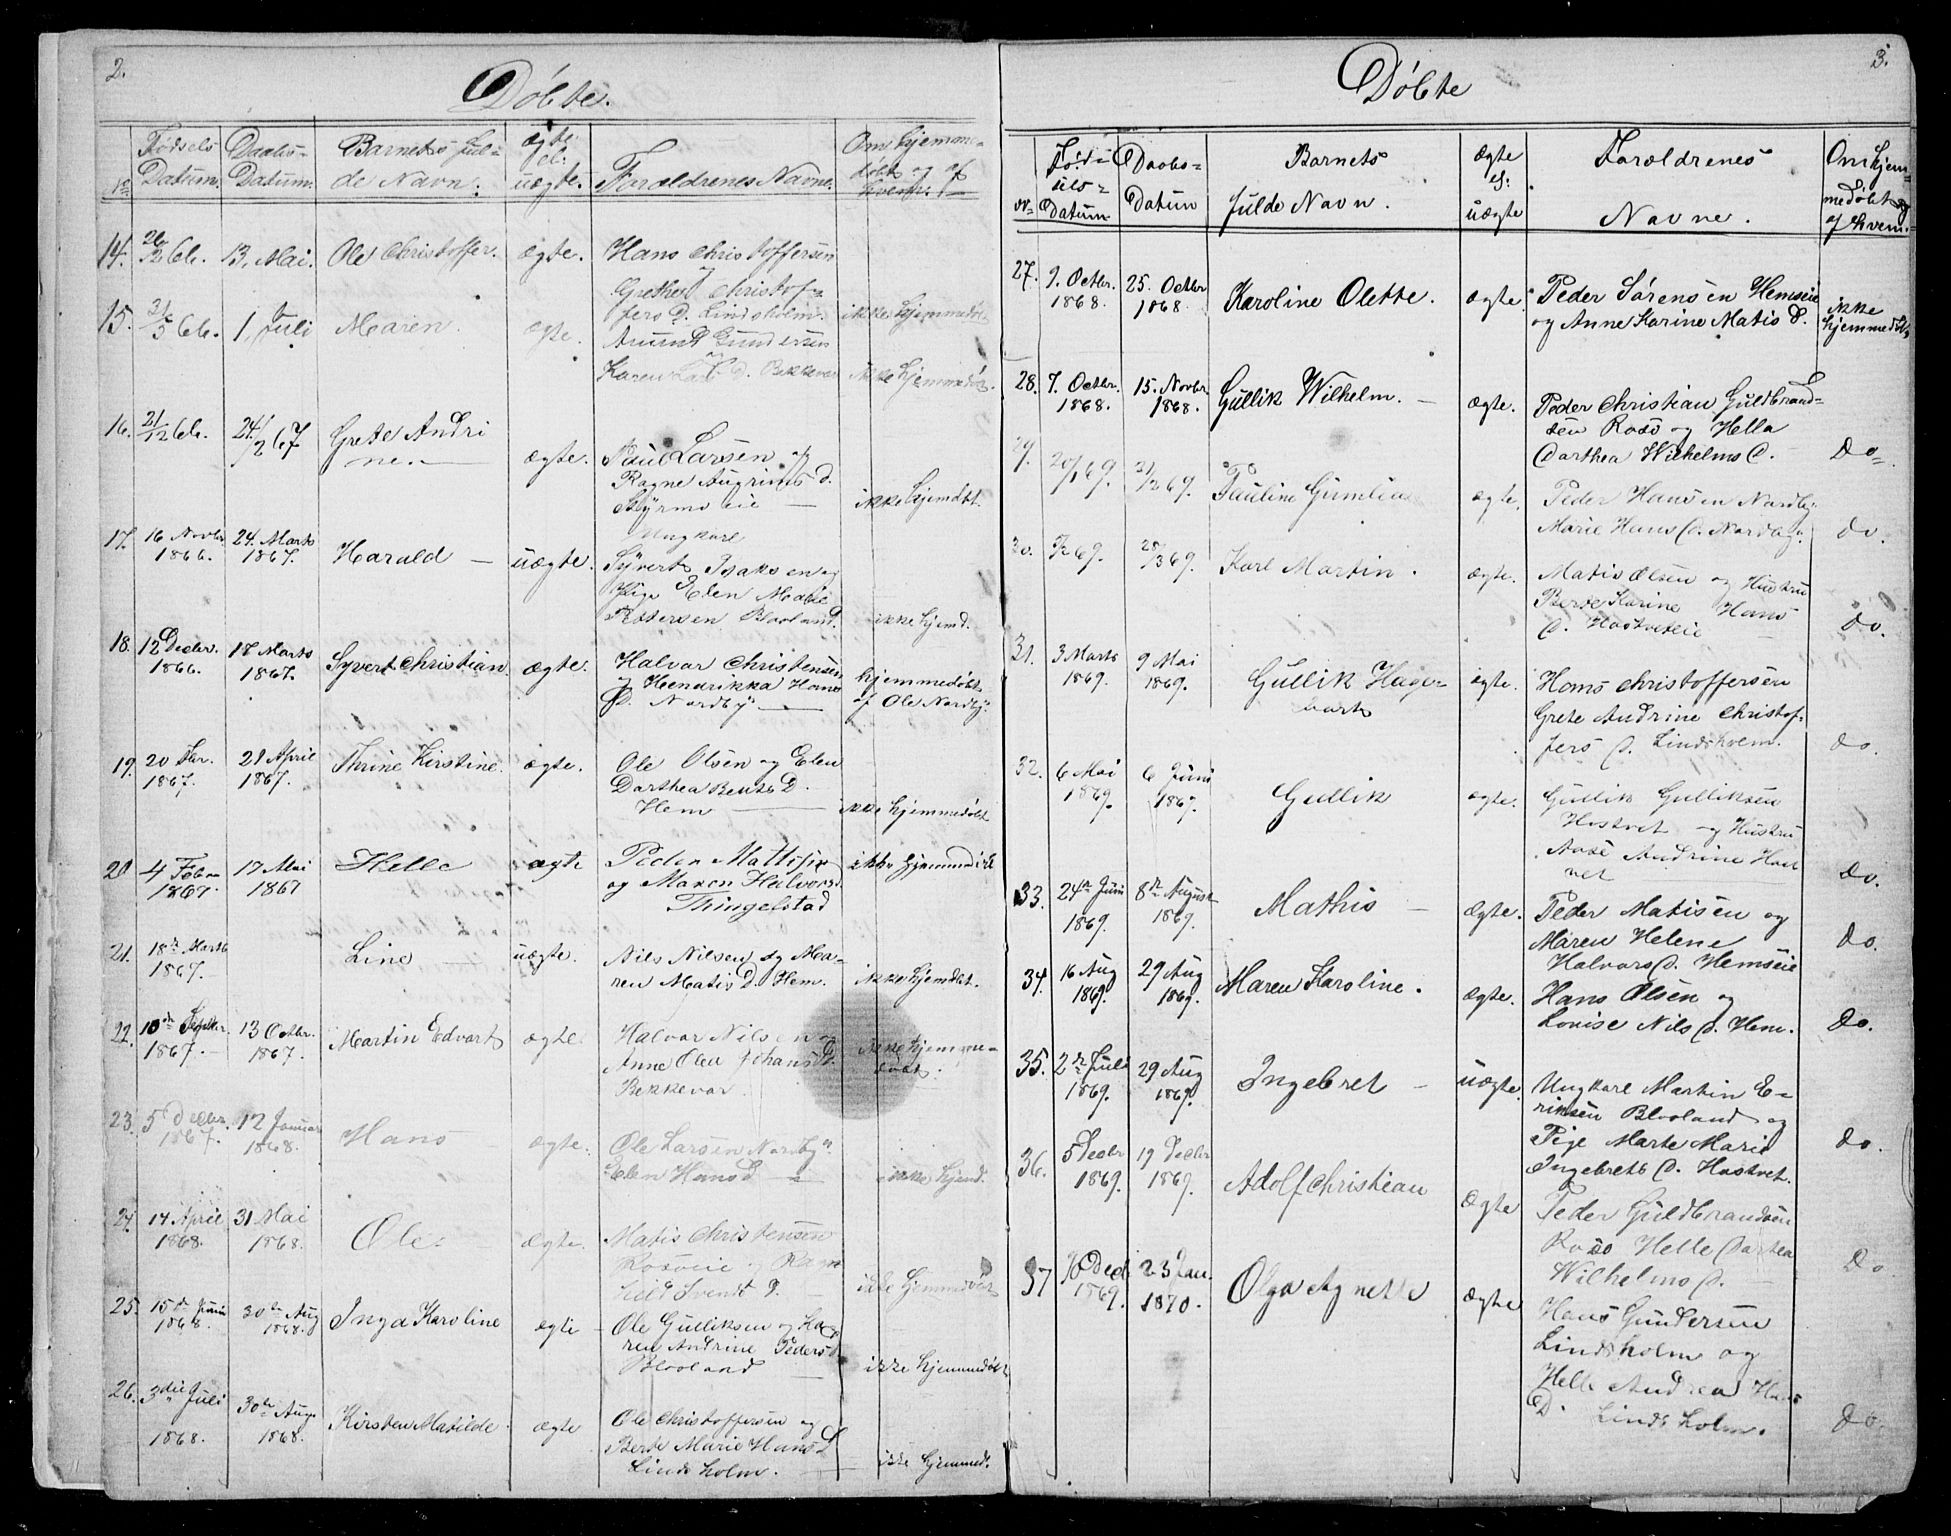 2.
Döbte.
Fødsels Datum.
Daabs-Datum.
Barnets fulde Navn.
ægte el. uægte.
Forældrenes Navne.
Om hjemmedöbt og af hvem.
14. 26/2 66. 13. Mai. Ole Christoffer. ægte. Hans Christoffersen
og
Grethe Christof-
fers D. Lindsholm. ikke hjemmedøbt
15. 31/5 66. 1. Juli Maren. ægte. Amund Gundersen
og
Karen Lars D. Bekkevar ikke hjemmedøbt.
16. 21/12 66. 24/2 67 Grete Andri
ne. ægte. Paul Larsen og
Ragne Augrims D.
ikke hjemdbt.
17. 16 Novbr. 1866. 24. Marts 1867. Harald uægte. Ungkarl
Syvert Isaksen og
Pige Elen Marie
Pedersen Blooland. ikke hjemd.
18. 12 Decbr. 1866. 17 Marts 1867. Syvert Christian. ægte. Halvar Christensen
og Hendrikka Hans
D. Nordby hjemmedøbt
af Ole Nordby.
19. 20 Fbr. 1867. 21 April 1867. Thrine Kirstine. ægte. Ole Olsen og Elen
Darthea Bents D.
Hem ikke hjemmedøbt
20 4 Febr 1867 17 Mai 1867 Helle ægte Peder Mattisen
og Maren Halvorsd.
Thingelstad ikke hjemmedöbt
21. 18de Marts 1867. Line uægte. Nils Nilsen og Ma-
ren Matis D. Hem. ikke hjemdbt.
22. 10de Septbr. 1867. 13 Octbr. 1867. Martin Edvart ægte. Halvar Nilsen og
Anne Olea Johans D.
Bekkevar ikke hjemme-
døbt.
23. 5 Decbr. 1867. 12 Januar 1868. Hans ægte. Ole Larsen Nordby
Elen Hans D ikke hjemd.
24. 14 April 1868. 31 Mai 1868. Ole ægte. Matis Christensen
Rosøeie og
Svends D. ikke hjemmedøbt
25. 15de Juni 1868. 30te Aug 1868. Inga Karoline ægte Ole Gulliksen og Ka-
ren Andrine Peders D
Blooland ikke hjemmedöbt
26. 3die Juli 1868. 30te Aug. 1868. Kirsten Matilde. ægte Ole Christoffersen og
Berte Marie Hans D
Lindsholm. ikke hjemmed.
3.
Döbte
No
Föd-sels-Datum
Daabs-Datum
Barnets fulde Navn.
ægte el. uægte
Forældrenes Navne.
Om hjemmedøbt og af hvem.
27. 9. Octbr. 1868. 25. Octbr 1868. Karoline Olette. ægte. Peder Sørensen Hemseie
og Anne Karine Matis D. ikke
hjemmedøbt
28. 7. Octbr. 1868. 15. Novbr 1868. Gullik Wilhelm. ægte. Peder Christian Guldbrand-
sen Rosø og Hella
Darthea Wilhelms D. Do.
29. 20/1 69. 21/2 69. Pauline Gumlia ægte. Peder Hansen Nordby.
Marie Hans D. Nordby. do.
30. 69. 28/3 69. Karl Martin. ægte. Matis Olsen og Hustru
Berte Karine Hans
D. Hostveteie do.
31. 3 Marts 1869. 9 Mai 1869. Gullik Hage-
bart ægte. Hans Christoffersen
Grete Andrine Christof-
fers D. Lindsholm. do.
32. 6 Mai 1869. 6 Juni 1869. Gullik ægte. Gullik Gulliksen
Hostvet og Hustru
Aase Andrine Host
vet do.
33. 24de Juni 1869. 8de August 1869. Mathis ægte. Peder Matisen og
Maren Helene
Halvors D. Hemseie do.
34. 16 Aug 1869. 29 Aug 1869. Maren Karoline. ægte. Hans Olsen og
Lovise Nils D. Hem. Do.
35. 2de Juli 1869. 29 Aug 1869. Ingebret uægte. Ungkarl Martin E-
riksen Blooland og
Pige Marte Marie
Ingebrets D. Hostvet. do.
36. 5 Decbr 1869. 19 Decbr 1869. Adolf Christian ægte Peder Guldbrandsen
Rosø Helle Dartea
Wilhelms D. Do
37 Decb. 1869. 23 Jan. 1870. Olga Agnette ægte Hans Gundersen
Lindsholm og
Helle Andrea Hans
D. Lindsholm. do.